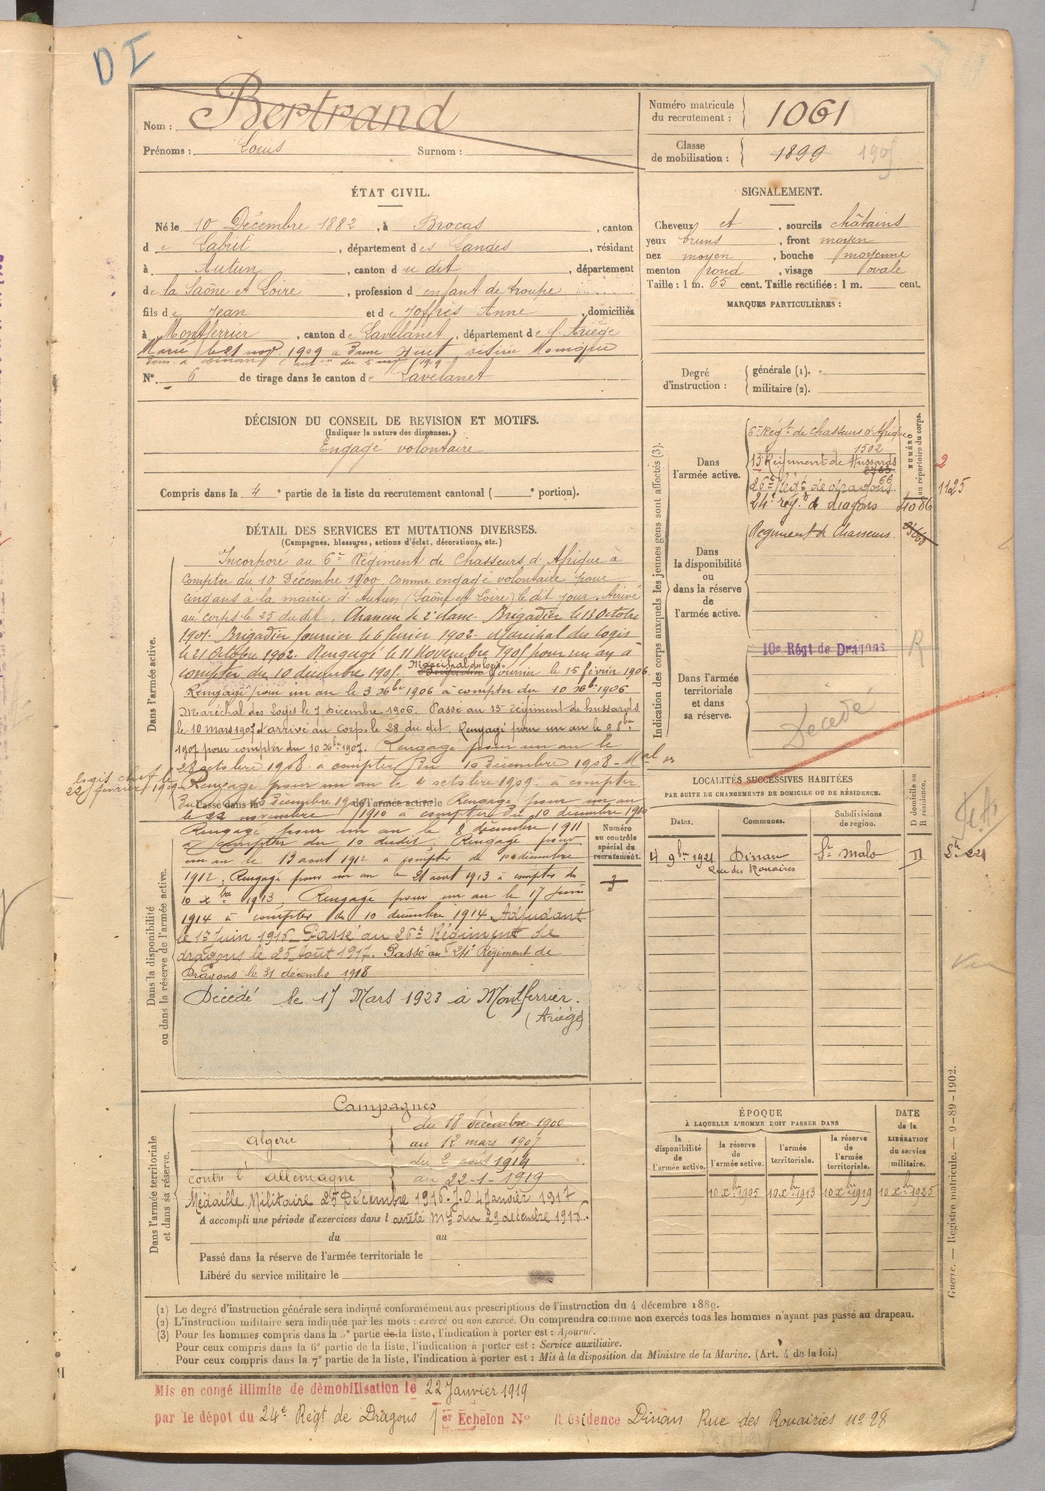 D I
Nom : Bertrand
Prénoms : Louis Surnom :
Numéro matricule du recrutement : 1061
Classe de mobilisation : 1899
ÉTAT CIVIL.
Né le 10 Décembre 1882, à Brocas, canton
de Labrit, département des Landes, résidant
à Autun, canton du dit, département
de la Saône et Loire, profession d enfant de troupe
fils de Jean et de Joffrès Anne, domiciliés
à Montferrier, canton de Lavelanet, département de l'Ariège
Marié le 21 nov 1909 à
N° 6 de tirage dans le canton de Lavelanet
SIGNALEMENT.
Cheveux et, sourcils châtains
yeux bruns, front moyen
nez moyen, bouche moyenne
menton rond, visage ovale
Taille : 1 m. 65 cent. Taille rectifiée : 1 m. cent.
MARQUES PARTICULIÈRES :
Degré d'instruction : générale (1). militaire (2).
DÉCISION DU CONSEIL DE REVISION ET MOTIFS.
(Indiquer la nature des dispenses.)
Engagé volontaire
Compris dans la 4e partie de la liste du recrutement cantonal ( e portion).
DÉTAIL DES SERVICES ET MUTATIONS DIVERSES.
(Campagnes, blessures, actions d'éclat, décorations, etc.)
Dans l'armée active.
Incorporé au 6e Régiment de Chasseurs d'Afrique à
compter du 10 Décembre 1900 comme engagé volontaire pour
cinq ans à la mairie d'Autun (Saône et Loire) le dit jour. Arrivé
au corps le 25 du dit. Chasseur de 2e classe. Brigadier le 13 Octobre
1901. Brigadier fourrier le 6 février 1902. Maréchal des logis
le 21 Octobre 1902. Rengagé le 11 Novembre 1905 pour un an à
compter du 10 décembre 1905. Maréchal des logis fourrier le 15 février 1906
Rengagé pour un an le 3 Xbre 1906 à compter du 10 Xbre 1906
Maréchal des Logis le 7 décembre 1906. Passé au 13e régiment de hussards
le 10 mars 1907 arrivé au corps le 28 du dit. Rengagé pour un an le
1907 pour compter du 10 Xbre 1907. Rengagé pour un an le
28 octobre 1908 à compter du 10 Décembre 1908. Mal des
logis chef le 22 février 1909
Rengagé pour un an le 4 octobre 1909 à compter
du Passé dans la Décembre 1909 de l'armée active le Rengagé pour un an
le 22 novembre 1910 à compter du 10 décembre 1910
Dans la disponibilité ou dans la réserve de l'armée active.
Rengagé pour un an le 8 décembre 1911
à compter du 10 du dit. Rengagé pour
un an le 13 aout 1912 à compter de 10 décembre
1912. Rengagé pour un an le 21 aout 1913 à compter du
10 Xbre 1913. Rengagé pour un an le 17 juin
1914 à compter du 10 décembre 1914 Adjudant
le 17 juin 1916 Passé au 26e Régiment de
dragons le 25 Août 1917. Passé au 24e Régiment de
Dragons le 31 décembre 1918
Décédé le 17 Mars 1923 à Montferrier.
(Ariège)
Numéro au contrôle spécial du recrutement.
Indication des corps auxquels les jeunes gens sont affectés (3).
Dans l'armée active.
6e Régt de Chasseurs d'Afrique
1502
13 Régiment de Hussards
26e Régt de dragons
24e rég. de dragons
NUMÉRO au répertoire du corps.
1125
1086
Dans la disponibilité ou dans la réserve de l'armée active.
Régiment de Chasseurs
10e Régt de Dragons
R
Dans l'armée territoriale et dans sa réserve.
Décédé
LOCALITÉS SUCCESSIVES HABITÉES
PAR SUITE DE CHANGEMENTS DE DOMICILE OU DE RÉSIDENCE.
Dates. Communes. Subdivisions de région. D domicile ou R résidence.
4 9bre 1921 Dinan St Malo D
Rue des Rouairies
Dans l'armée territoriale et dans sa réserve.
Campagnes
Algérie du 18 décembre 1900
au 12 mars 1907
contre l'Allemagne du 2 août 1914
au 22-1-1919
Médaille Militaire 25 Décembre 1916 J.O. 4 Janvier 1917
A accompli une période d'exercices dans l arrêté Mel du 29 décembre 1916.
du au
Passé dans la réserve de l'armée territoriale le
Libéré du service militaire le
ÉPOQUE
À LAQUELLE L'HOMME DOIT PASSER DANS
DATE de la LIBÉRATION du service militaire.
la disponibilité de l'armée active. la réserve de l'armée active. l'armée territoriale. la réserve de l'armée territoriale.
10 Xbre 1905 10 Xbre 1913 10 Xbre 1919 10 Xbre 1925
(1) Le degré d'instruction générale sera indiqué conformément aux prescriptions de l'instruction du 4 décembre 1889.
(2) L'instruction militaire sera indiquée par les mots : exercé ou non exercé. On comprendra comme non exercés tous les hommes n'ayant pas passé au drapeau.
(3) Pour les hommes compris dans la 5e partie de la liste, l'indication à porter est : Ajourné.
Pour ceux compris dans la 6e partie de la liste, l'indication à porter est : Service auxiliaire.
Pour ceux compris dans la 7e partie de la liste, l'indication à porter est : Mis à la disposition du Ministre de la Marine. (Art. 4 de la loi.)
Guerre. — Registre matricule. — 9-89-1902.
Mis en congé illimité de démobilisation le 22 Janvier 1919
par le dépôt du 24e Régt de Dragons 1er Echelon No Résidence Dinan Rue des Rouairies no 28